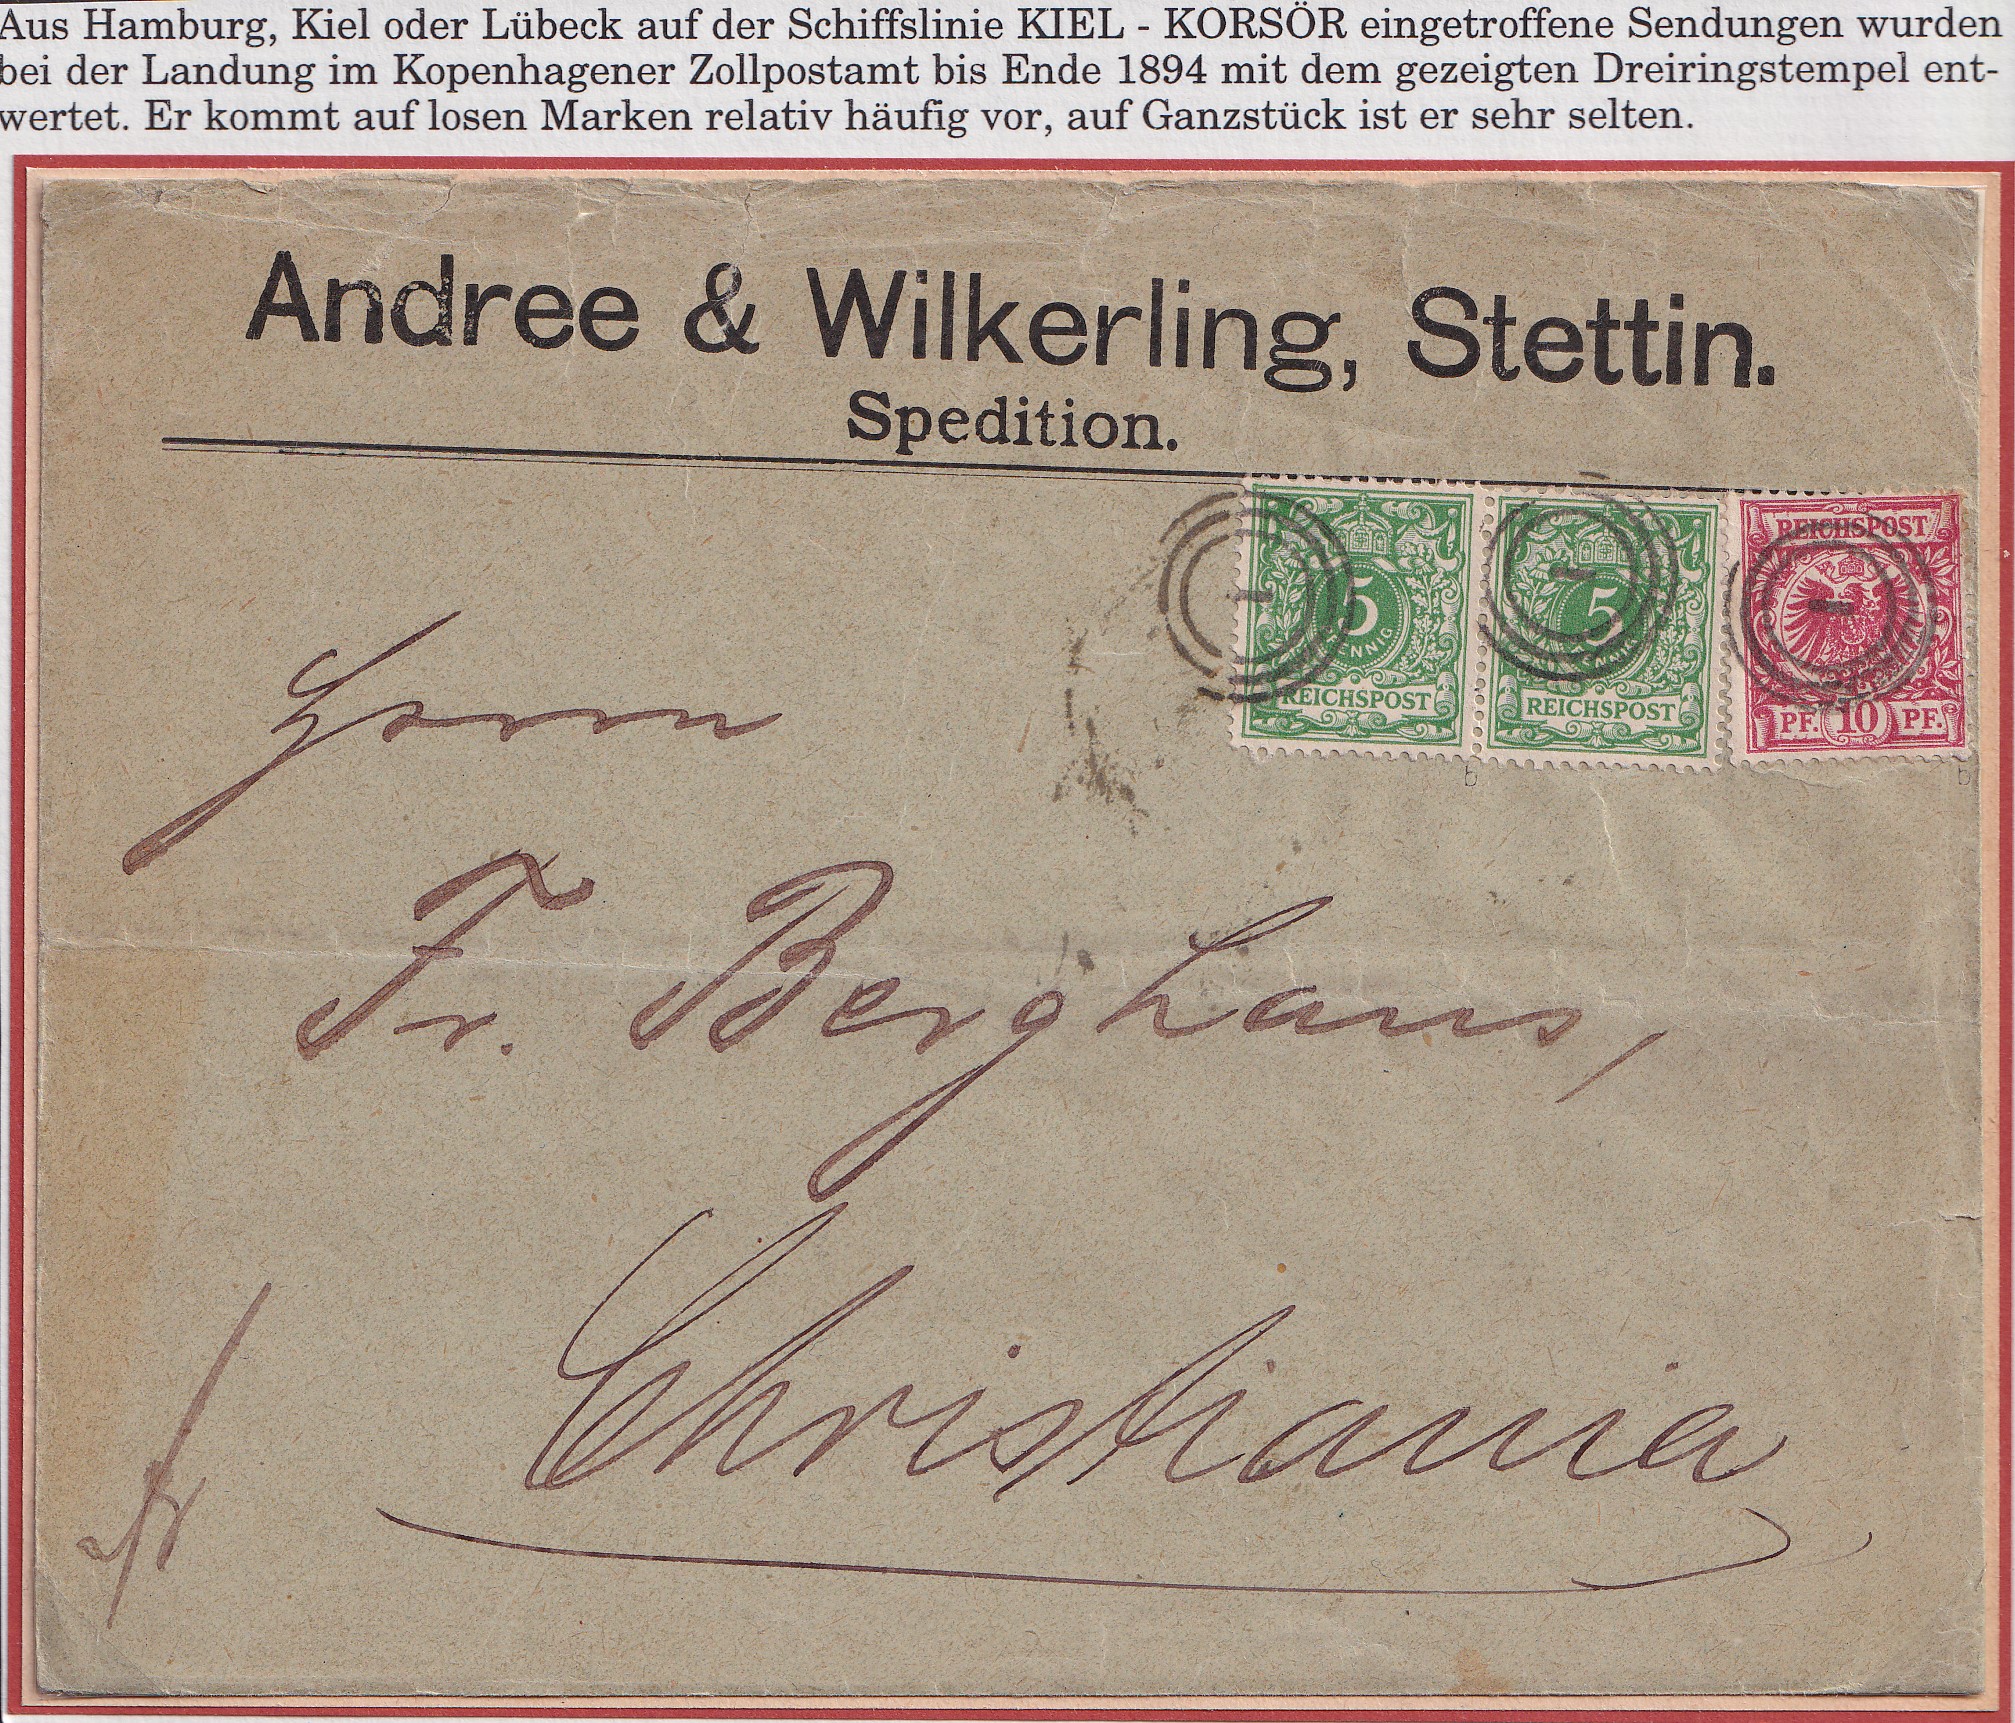 Aus Hamburg, Kiel oder Lübeck auf der Schiffslinie KIEL - KORSÖR eingetroffene Sendungen wurden
bei der Landung im Kopenhagener Zollpostamt bis Ende 1894 mit dem gezeigten Dreiringstempel ent-
wertet. Er kommt auf losen Marken relativ häufig vor, auf Ganzstück ist er sehr selten.
Andree & Wilkerling, Stettin.
Spedition.
5 PFENNIG REICHSPOST
1
5 PFENNIG REICHSPOST
1
REICHSPOST
1
PF. 10 PF.
b b
Herrn
Fr. Berghaus,
Christiania